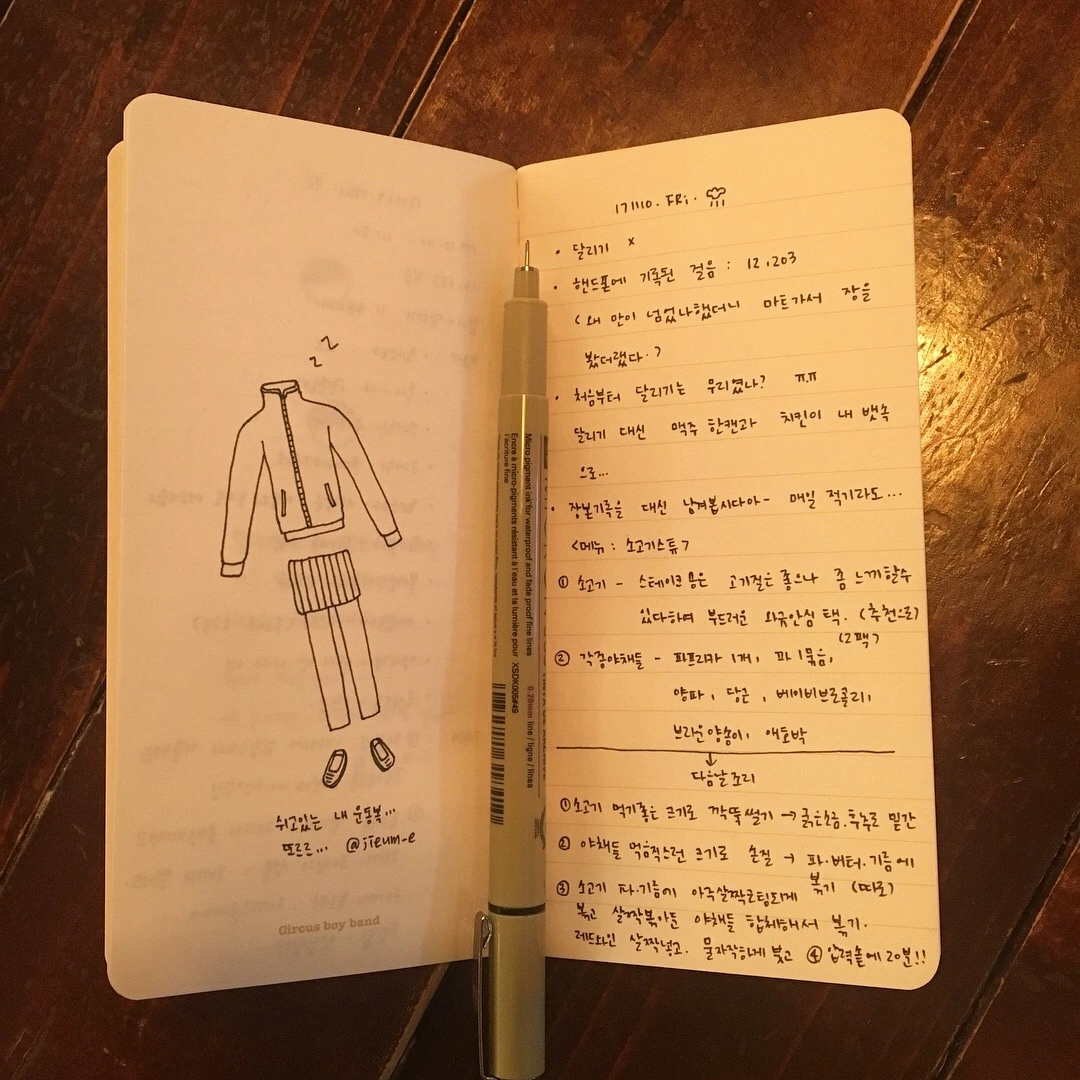 z z
쉬고있는 내 운동복...
또르르... @jieum-e
Circus boy band
Micro pigment ink for waterproof and fade proof fine lines
Encre à micro-pigments résistant à l'eau et la lumière pour
l'écriture fine
XSDK005#49
0.20mm line / ligne / línea
171110. FRi.
• 달리기 x
• 핸드폰에 기록된 걸음 : 12,203
< 왜 만이 넘었나했더니 마트가서 장을
봤더랬다. >
• 처음부터 달리기는 무리였나? ㅠ.ㅠ
달리기 대신 맥주 한캔과 치킨이 내 뱃속
으로...
• 장본기록을 대신 남겨봅시다아- 매일 적기라도...
<메뉴 : 소고기스튜>
① 소고기 - 스테이크용은 고기질은 좋으나 좀 느끼할수
있다하여 부드러운 외국안심 택. (추천으로)
(2팩)
② 각종야채들 - 파프리카 1개, 파 1묶음,
양파, 당근, 베이비브로콜리,
브라운양송이, 애호박
↓
다음날조리
① 소고기 먹기좋은 크기로 깍뚝썰기 → 굵은소금.후추로 밑간
② 야채들 먹음직스런 크기로 손질 → 파.버터.기름에
볶기 (따로)
③ 소고기 파.기름에 아주살짝코팅되게
볶고 살짝볶아둔 야채들 합체해서 볶기.
레드와인 살짝넣고. 물자작하게 붓고 ④ 압력솥에 20분!!